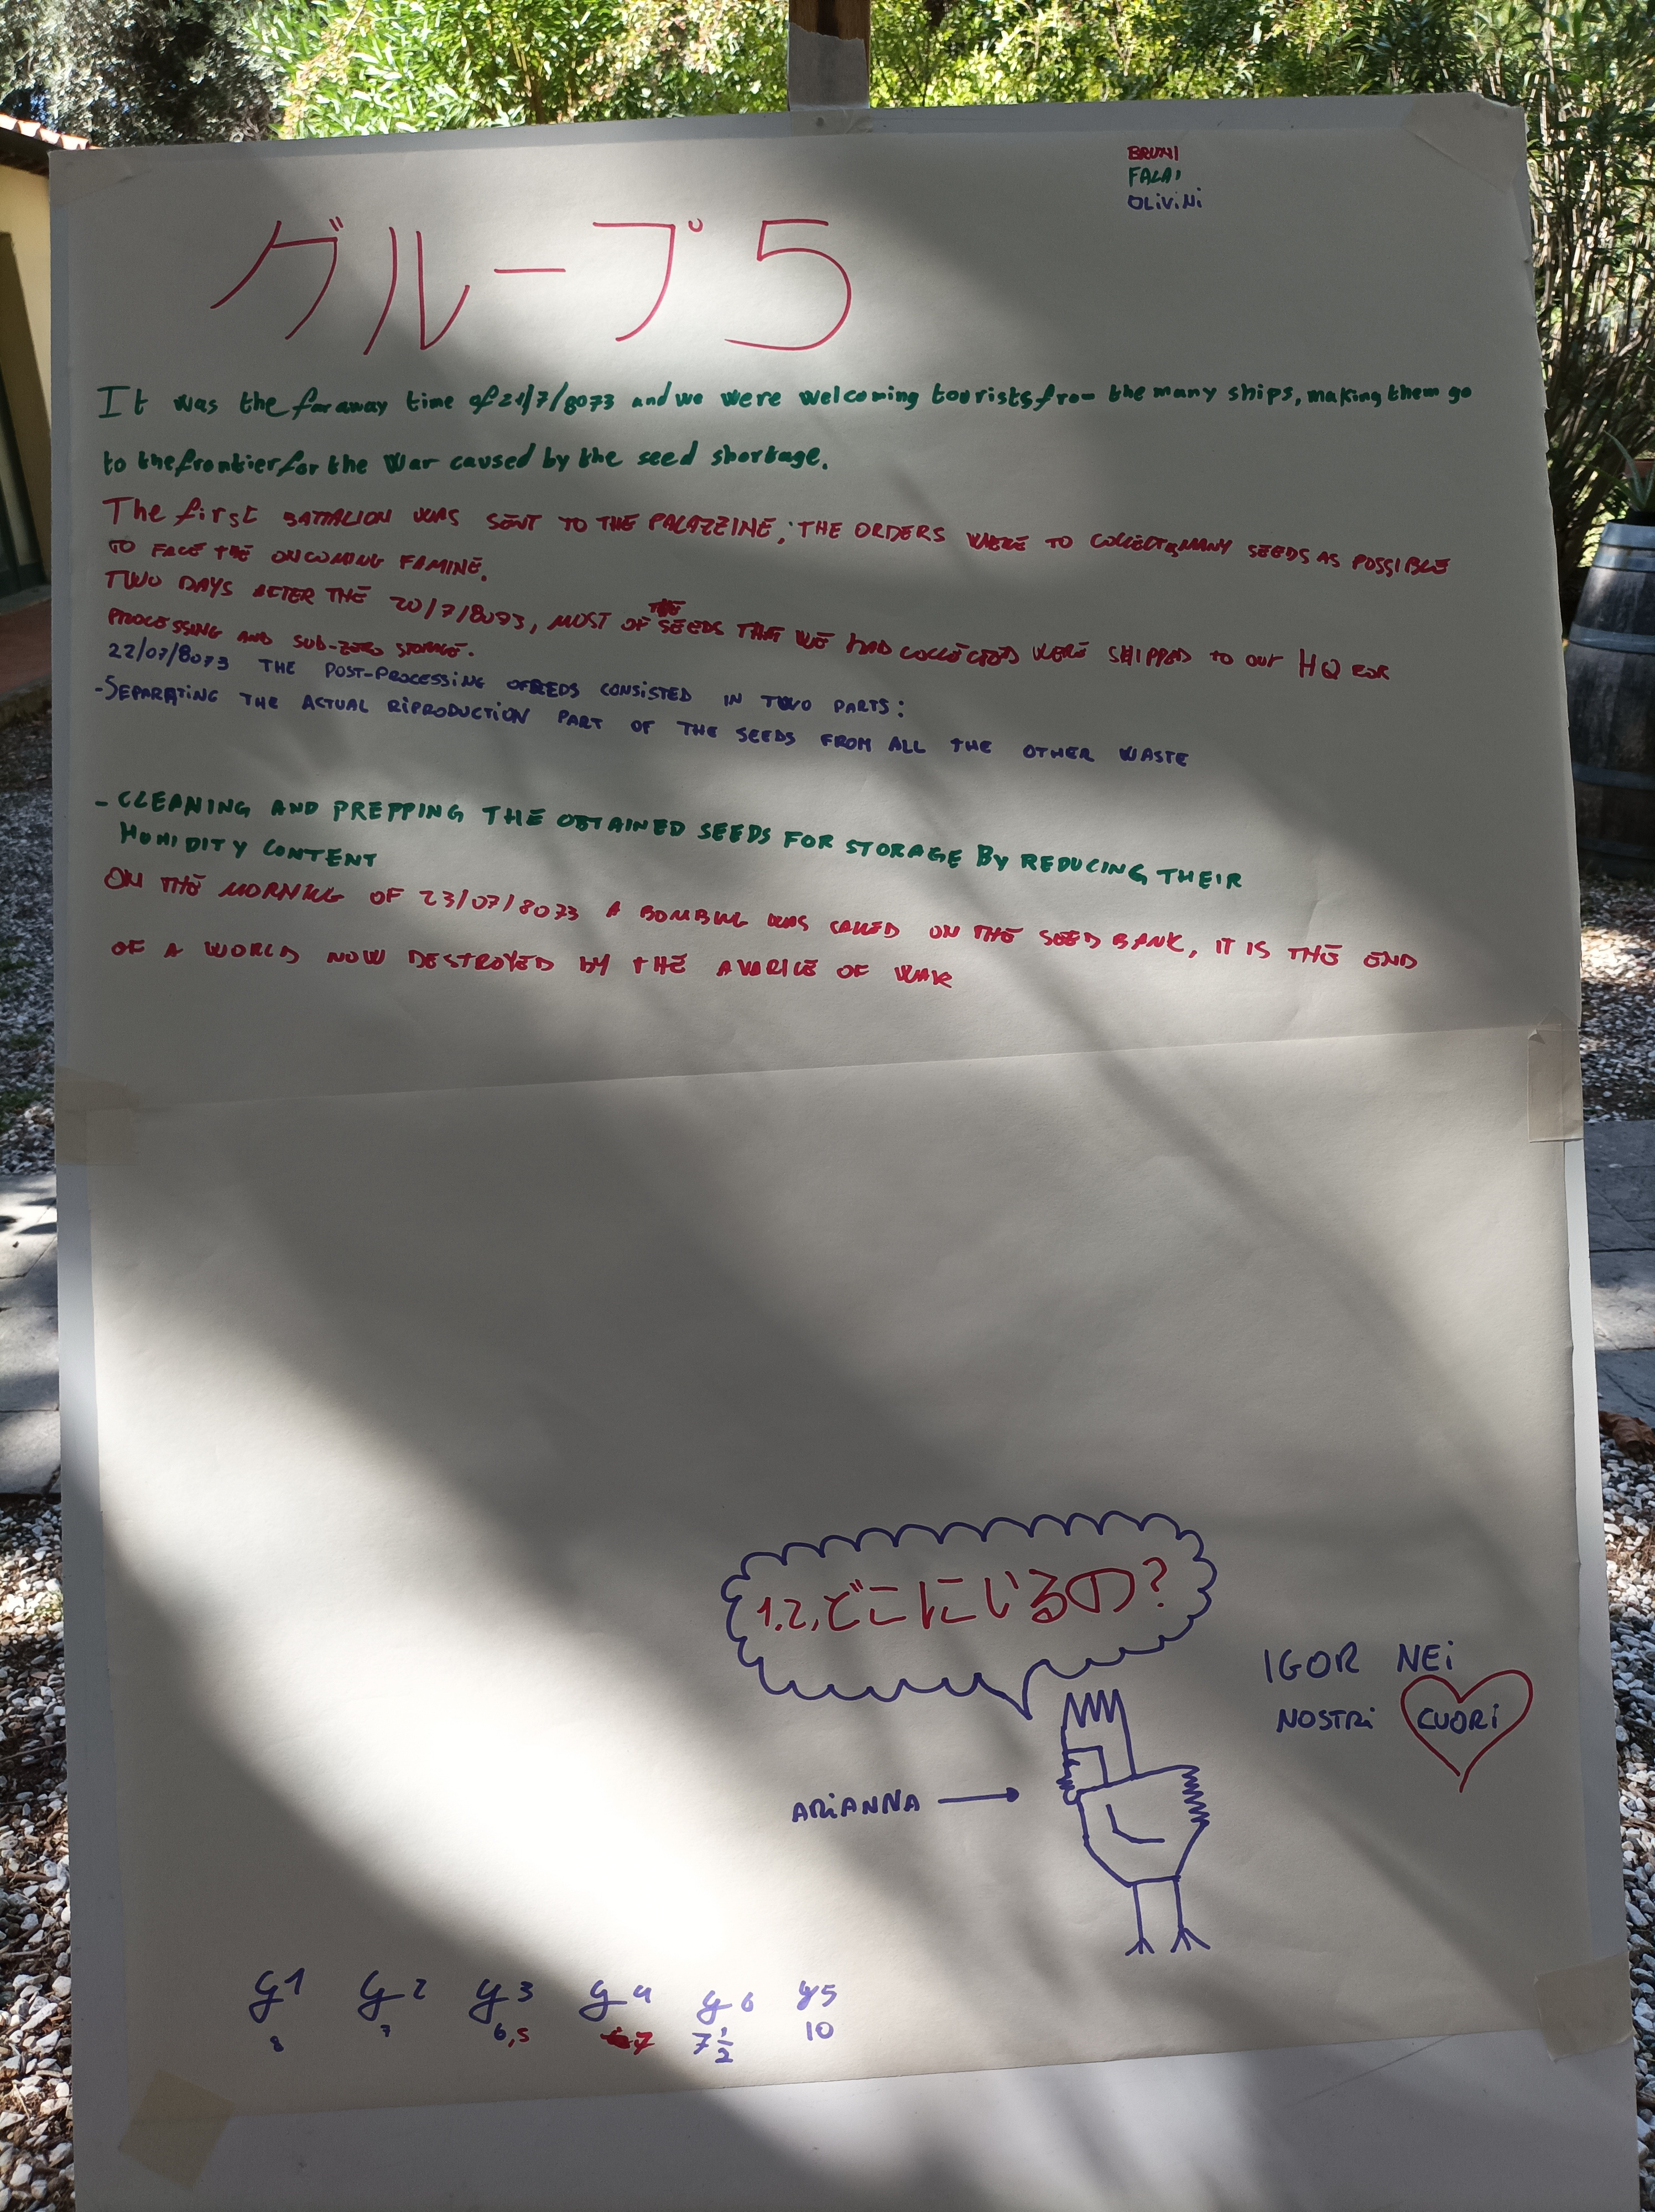 BRUNI
FALAI
OLIVINI
グループ5
It was the far away time of 21/7/8073 and we were welcoming tourists from the many ships, making them go
to the frontier for the War caused by the seed shortage.
The first BATTALION WAS SENT TO THE PALAZZINE; THE ORDERS WERE TO COLLECT MANY SEEDS AS POSSIBLE
TO FACE THE ONCOMING FAMINE.
TWO DAYS AFTER THE 20/7/8073, MOST OF THE SEEDS THAT WE HAD COLLECTED WERE SHIPPED TO OUR HQ FOR
PROCESSING AND SUB-ZERO STORAGE.
22/07/8073 THE POST-PROCESSING OF CONSISTED IN TWO PARTS:
-SEPARATING THE ACTUAL RIPRODUCTION PART OF THE SEEDS FROM ALL THE OTHER WASTE
- CLEANING AND PREPPING THE OBTAINED SEEDS FOR STORAGE BY REDUCING THEIR
HUMIDITY CONTENT
ON THE MORNING OF 23/07/8073 A BOMBING WAS CALLED ON THE SEED BANK, IT IS THE END
OF A WORLD NOW DESTROYED BY THE AVARICE OF WAR
1,2,どこにじるの?
IGOR NEI
NOSTRI CUORI
ARIANNA
g1 g2 g3 g4 g6 g5
8 7 6,5 7 7 1/2 10